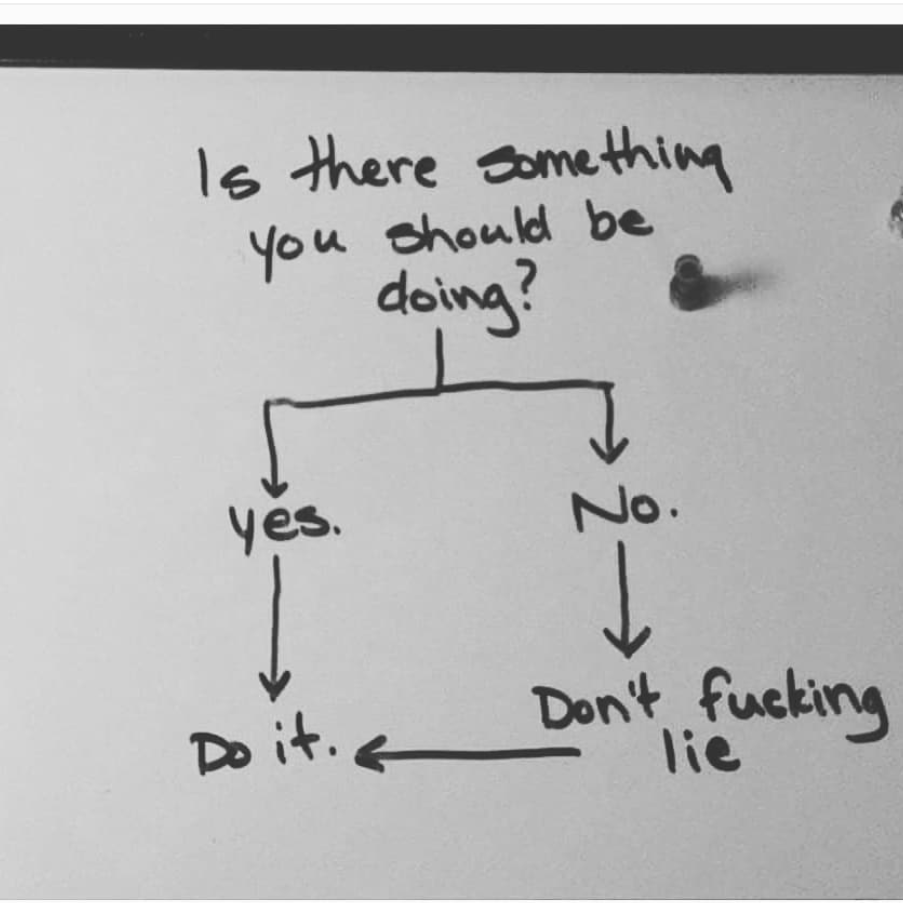 Is there something
you should be
doing?
yes.
No.
Do it.
Don't fucking
lie